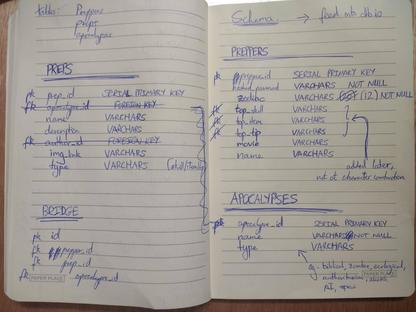 Preppers
preps
apocalypses
PREPS
pk prep_id SERIAL PRIMARY KEY
fk apocalypse_id FOREIGN KEY
name VARCHARS
description VARCHARS
fk author_id FOREIGN KEY
img_link VARCHARS
type VARCHARS
BRIDGE
pk id
fk prepper_id
fk prep_id
fk apocalypse_id
PAPER PLACE
Schema →
PREPPERS
pk prepper_id SERIAL PRIMARY KEY
VARCHARS NOT NULL
zodiac VARCHARS (12) NOT NULL
fk top_skill
fk top_item
fk top_tip
movie VARCHARS
name VARCHARS
added later,
not at character
APOCALYPSES
pk apocalypse_id SERIAL PRIMARY KEY
name VARCHARS NOT NULL
type VARCHARS
eg - biblical, zombie, ecological,
authoritarian, aliens,
AI, space